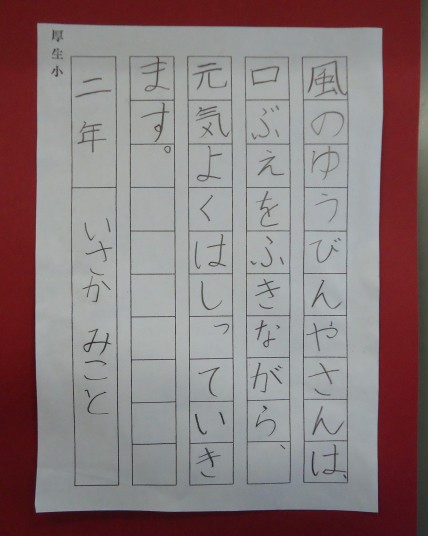 風のゆうびんやさんは、
口ぶえをふきながら、
元気よくはしっていき
ます。
二年 いさか みこと
厚生小